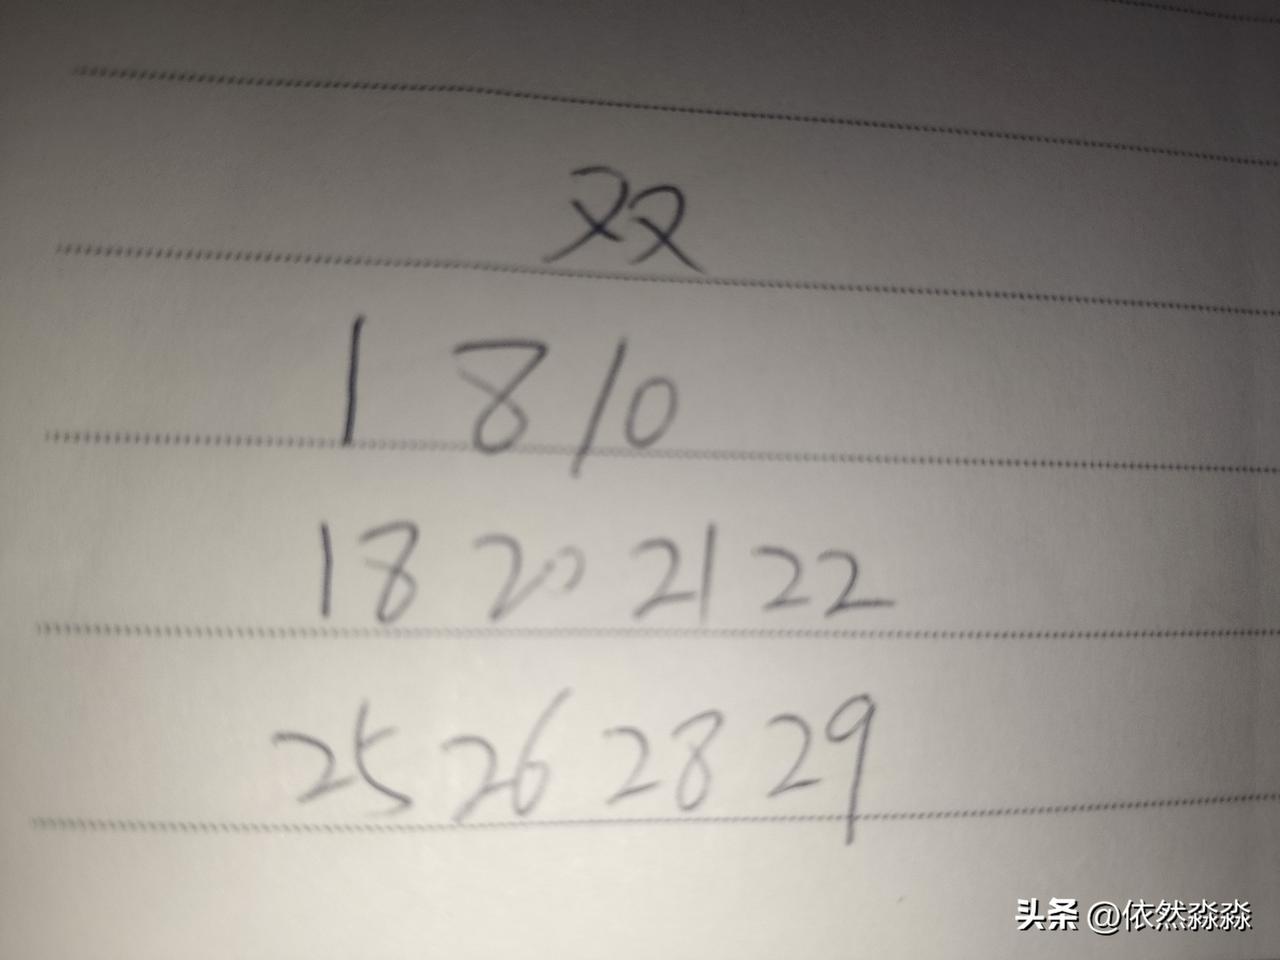 双
1 8 10
18 20 21 22
25 26 28 29
头条 @依然淼淼